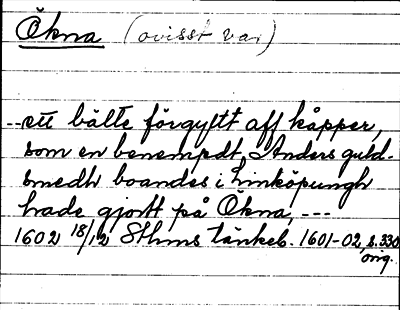 Ökna (ovisst var)
--- ett bälte förgyltt aff kåpper,
som en benempdt Anders guld-
smedh boandes i Linköpungh
hade gjortt på Ökna, ---
1602 18/12 Sthms tänkeb. 1601-02, s. 330
orig.